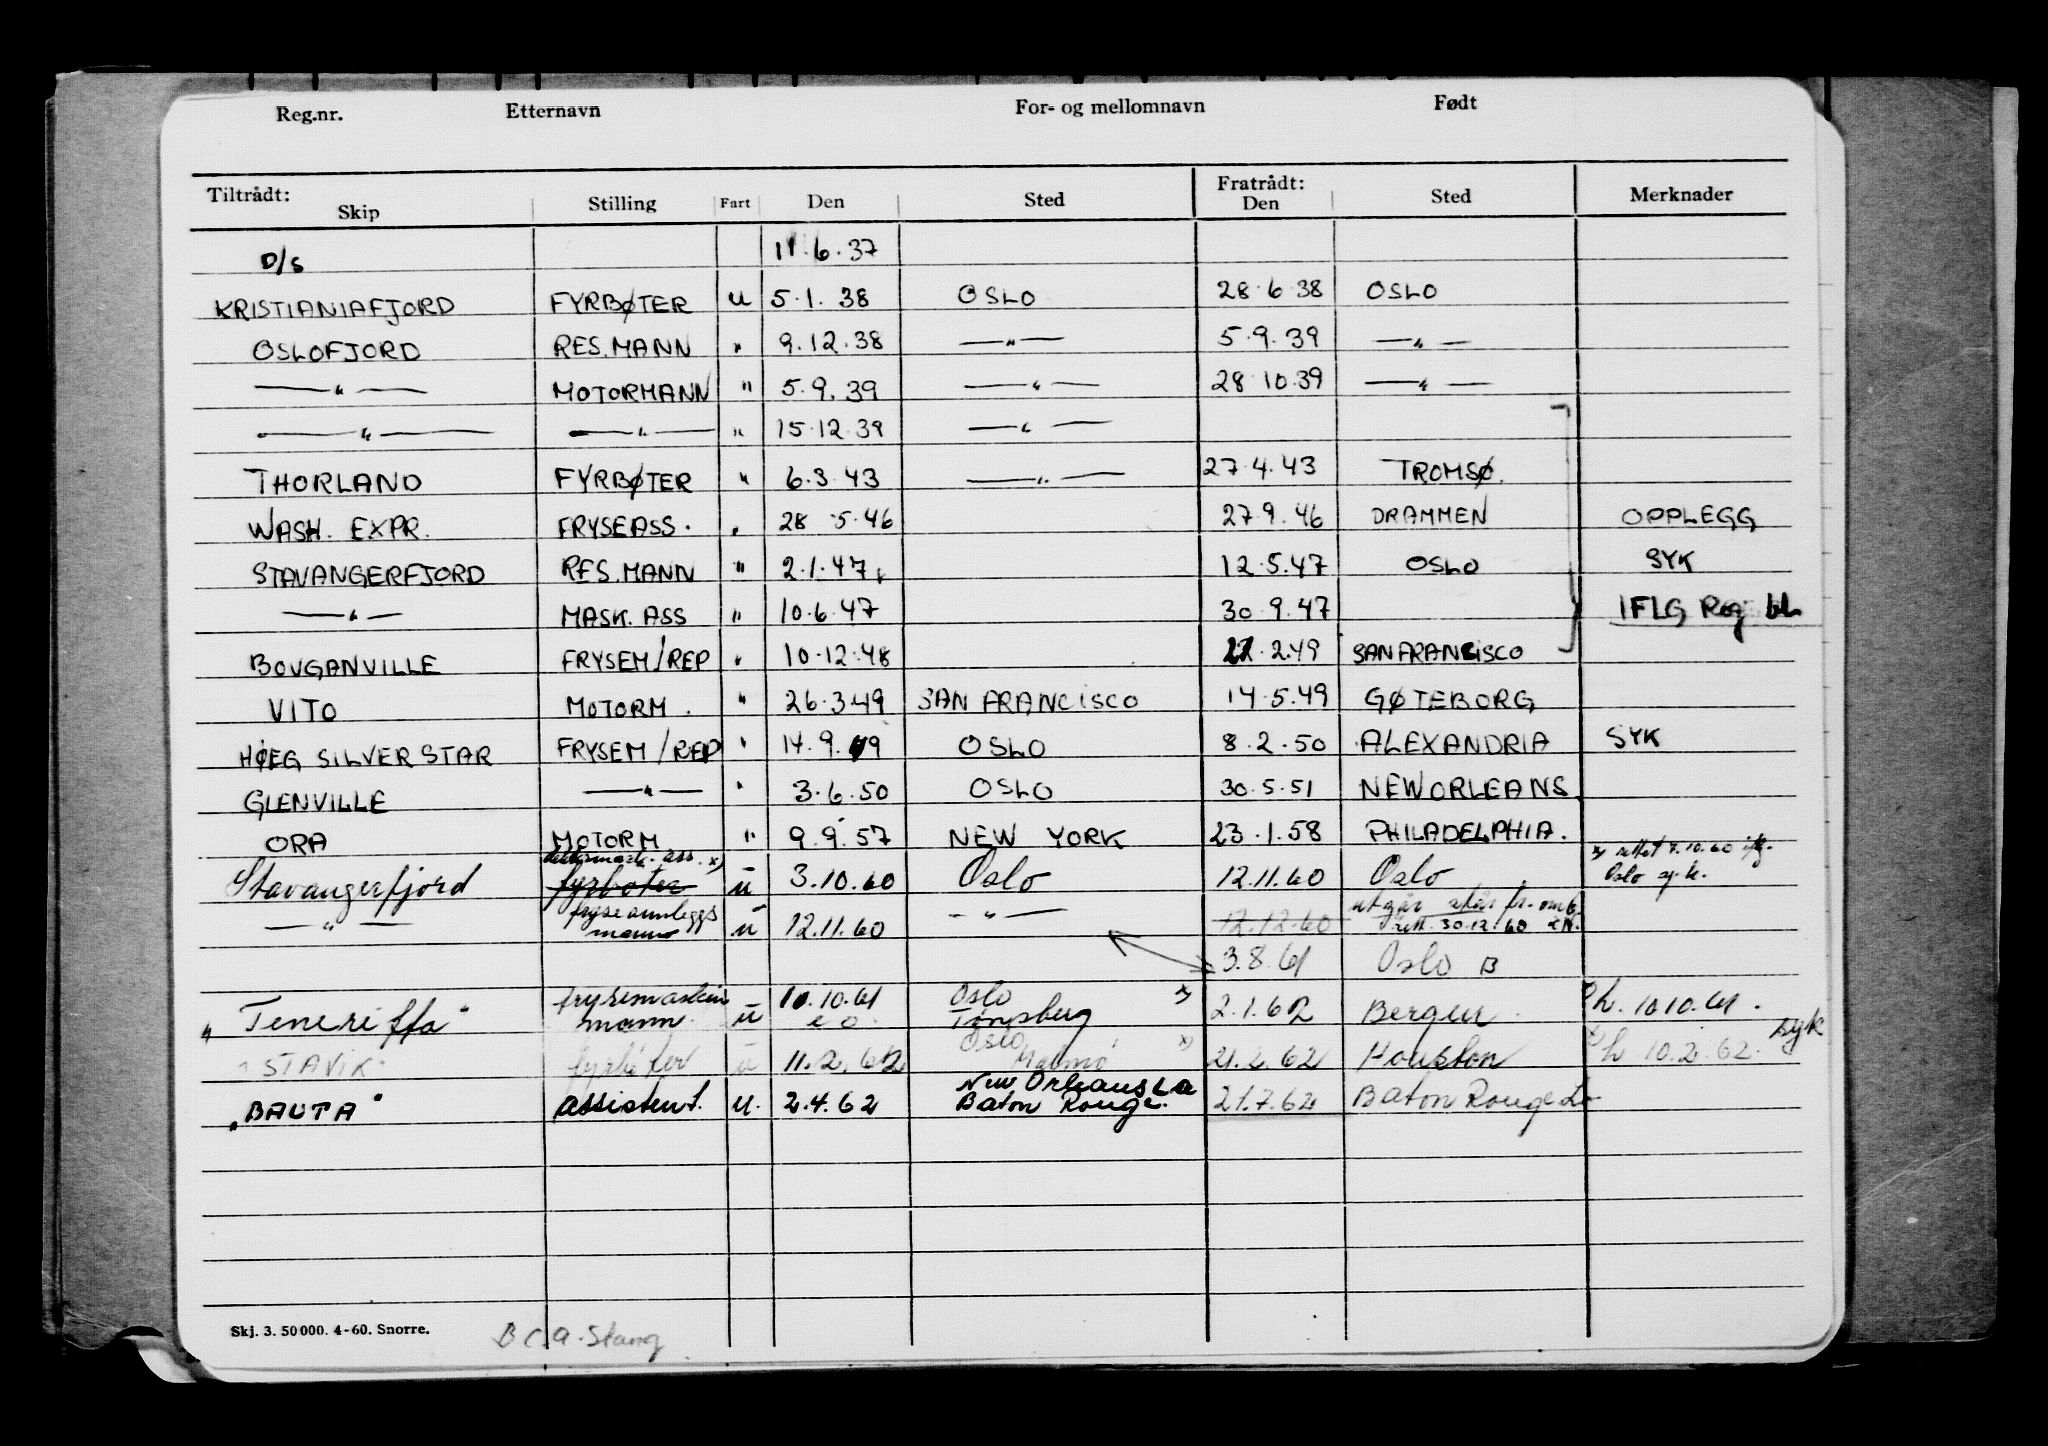 Reg.nr. Etternavn For- og mellomnavn Født
Tiltrådt: Fratrådt:
Skip Stilling Fart Den Sted Den Sted Merknader
D/S 11.6.37
KRISTIANIAFJORD FYRBØTER U 5.1.38 OSLO 28.6.38 OSLO
OSLOFJORD RES.MANN " 9.12.38 —"— 5.9.39 —"—
—"— MOTORMANN " 5.9.39 —"— 28.10.39 —"—
—"— —"— " 15.12.39 —"—
THORLAND FYRBØTER " 6.3.43 —"— 27.4.43 TROMSØ.
WASH. EXPR. FRYSEASS. " 28.5.46 27.9.46 DRAMMEN OPPLEGG
STAVANGERFJORD RES.MANN " 2.1.47 12.5.47 OSLO SYK
—"— MASK.ASS " 10.6.47 30.9.47 IFLG Reg bl
BOUGANVILLE FRYSEM/REP " 10.12.48 22.2.49 SANFRANCISCO
VITO MOTORM. " 26.3.49 SAN FRANCISCO 14.5.49 GØTEBORG
HØEG SILVER STAR FRYSEM/REP " 14.9.49 OSLO 8.2.50 ALEXANDRIA SYK
GLENVILLE —"— " 3.6.50 OSLO 30.5.51 NEWORLEANS
ORA MOTORM " 9.9.57 NEW YORK 23.1.58 PHILADELPHIA.
ass. x) x) rettet 7.10.60 iflg.
Stavangerfjord fyrbøter u 3.10.60 Oslo 12.11.60 Oslo Oslo sj.k.
fryseanleggs utgår står fr. omb.
—"— mann u 12.11.60 —"— 12.12.60 rett. 30.12.60
3.8.61 Oslo B
frysemaskin 10.10.61 Oslo x)
"Teneriffa" mann u Tønsberg 2.1.62 Bergen. x) h. 10.10.61.
Oslo x) syk
"STAVIK" fyrbøter u 11.2.62 Malmø 21.2.62 Houston x) h 10.2.62.
New Orleans La
"BAUTA" assistent. u. 2.4.62 Baton Rouge. 21.7.62 Baton Rouge La
Skj. 3. 50 000. 4-60. Snorre. B C.A. Stang